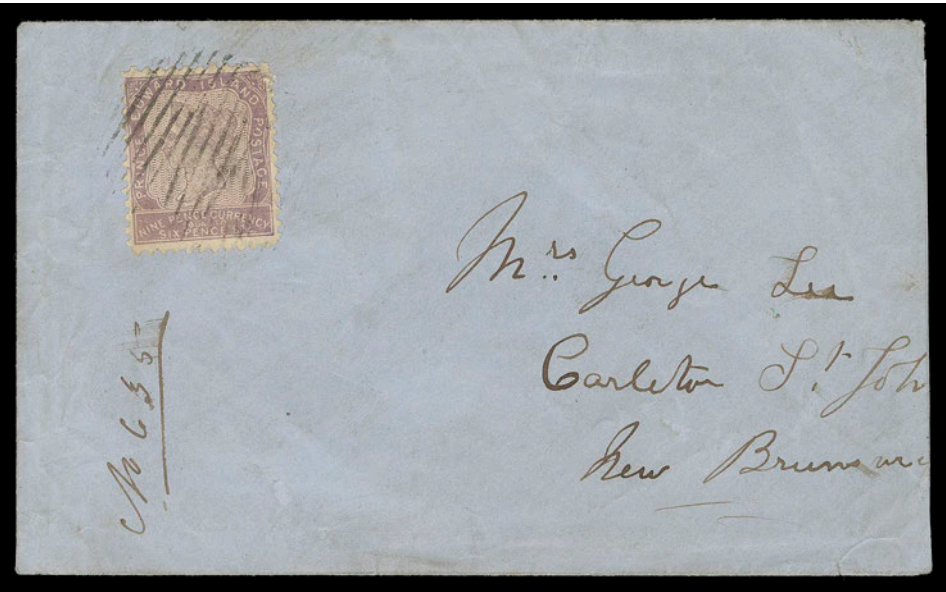 PRINCE EDWARD ISLAND POSTAGE
NINE PENCE CURRENCY
SIX PENCE
Mrs George Lea
Carleton St. Joh
New Brunswi
No 635